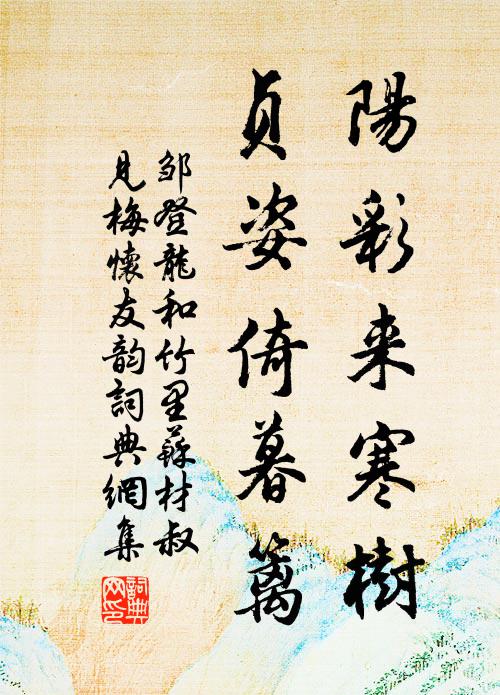 陽彩来寒樹
貞姿倚暮籬
邹登龍和竹里蘇材叔
見梅懷友韵詞典網集
詞典网印